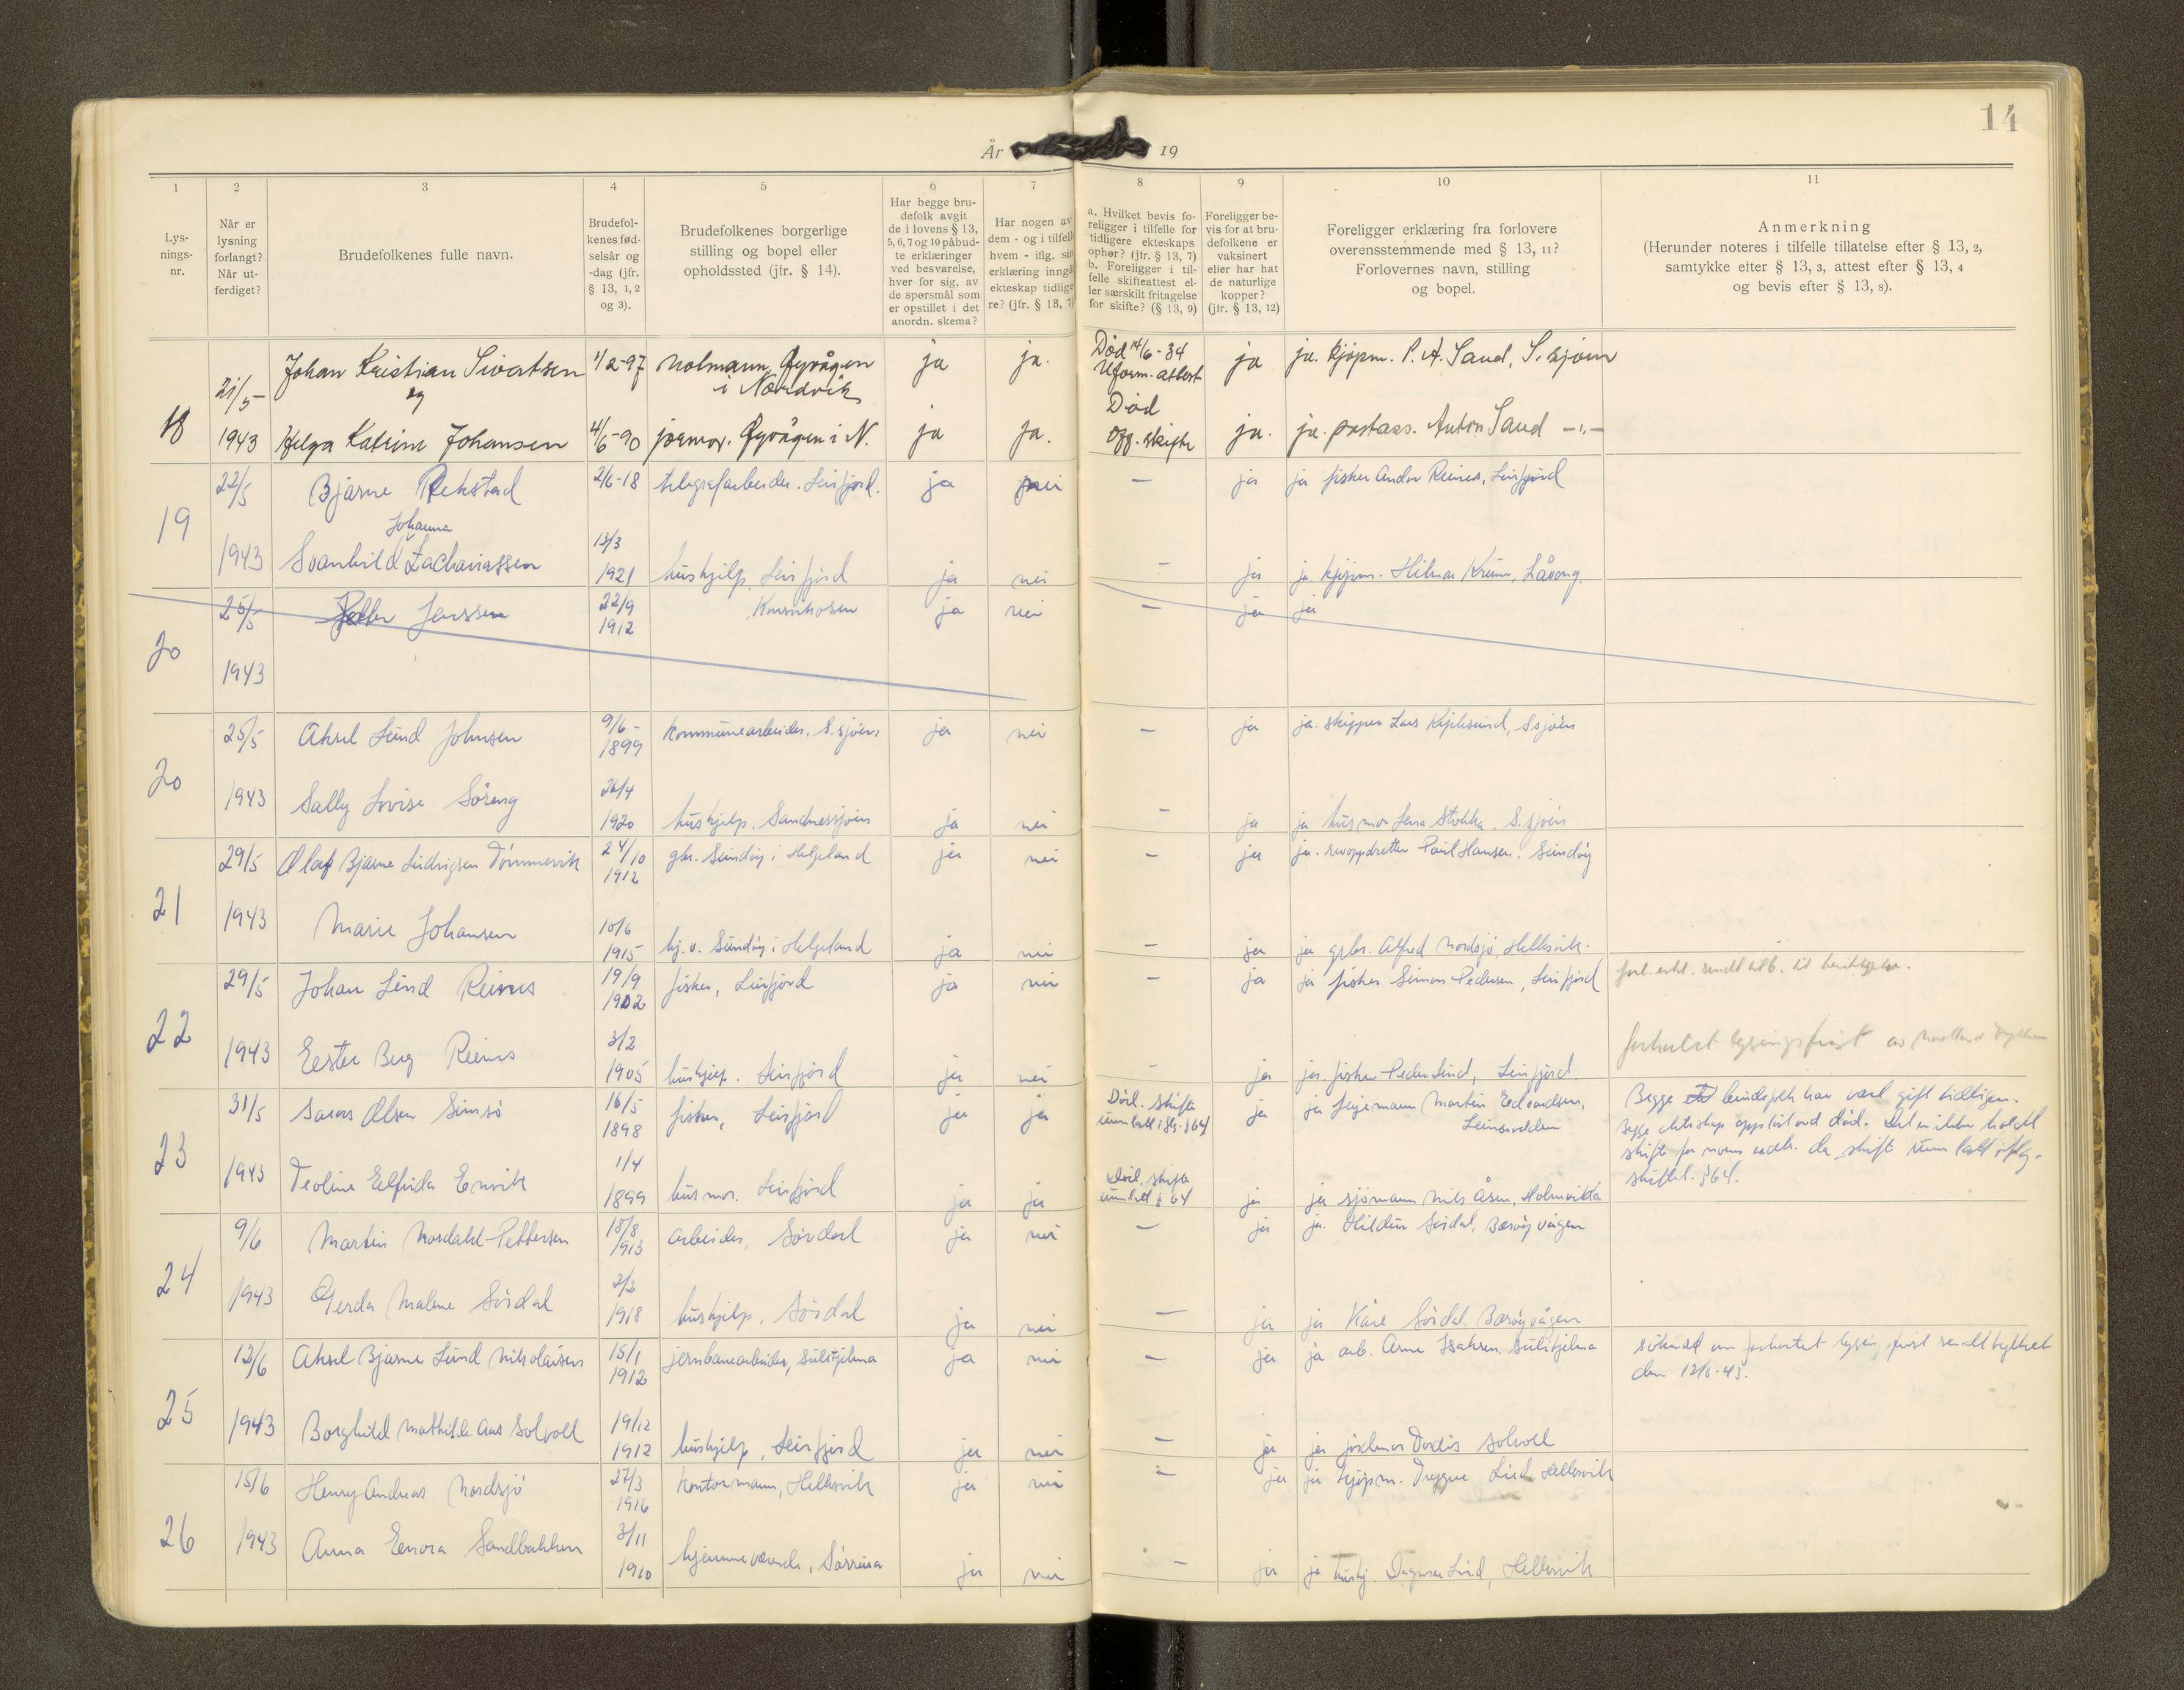 14
År 19
1 2 3 4 5 6 7 8 9 10 11
Lys-
nings-
nr.
Når er
lysning
forlangt?
Når ut-
ferdiget?
Brudefolkenes fulle navn.
Brudefol-
kenes fød-
selsår og
-dag (jfr.
§ 13, 1, 2
og 3).
Brudefolkenes borgerlige
stilling og bopel eller
opholdssted (jfr. § 14).
Har begge bru-
defolk avgit
de i lovens § 13,
5, 6, 7 og 10 påbud-
te erklæringer
ved besvarelse,
hver for sig, av
de spørsmål som
er opstillet i det
anordn. skema?
Har nogen av
dem - og i tilfelle
hvem - iflg. sin
erklæring inngåt
ekteskap tidlige-
re? (jfr. § 13, 7)
a. Hvilket bevis fo-
religger i tilfelle for
tidligere ekteskaps
ophør? (jfr. § 13, 7)
b. Foreligger i til-
felle skifteattest el-
ler særskilt fritagelse
for skifte? (§ 13, 9)
Foreligger be-
vis for at bru-
defolkene er
vaksinert
eller har hat
de naturlige
kopper?
(jfr. § 13, 12)
Foreligger erklæring fra forlovere
overensstemmende med § 13, 11?
Forlovernes navn, stilling
og bopel.
Anmerkning
(Herunder noteres i tilfelle tillatelse efter § 13, 2,
samtykke efter § 13, 3, attest efter § 13, 4
og bevis efter § 13, 8).
21/5 Johan Kristian Sivertsen 1/2-97 notmann, i Nordvik ja ja. Død 14/6-34 Uform. attest ja ja. kjøpm. P. A. Sand, S. sjøen
og
18 1943 Helga Katrine Johansen 4/6-90 jormor. i N. ja ja. Død Off. skifte ja. ja. postass. Anton Sand -"-
22/5 Bjarne Rekstad 2/6-18 telegrafarbeider. Leirfjord. ja nei - ja ja fisker Andor Reines, Leirfjord
19 1943 Svanhild Johanna Zachariassen 13/3 1921 hushjelp, Leirfjord ja nei - ja ja kjøpm. Hilmar Krum, Låvong.
20 25/5 1943 Petter Jenssen 22/9 1912 ja nei - ja ja
25/5 Aksel Lind Johnsen 9/6- 1899 kommunearbeider, S. sjøen, ja nei - ja ja. skipper Lars S.sjøen
20 1943 Sally Lovise Søreng 26/4 1920 hushjelp, Sandnessjøen ja nei - ja ja husmor Lena Stokka, S. sjøen
29/5 Olaf Bjarne Ludvigsen Tømmervik 24/10 1912 gbr. Sundøy i Helgeland ja nei - ja ja. revoppdretter Paul Hansen, Sundøy
21 1943 Marie Johansen 10/6 1915 hj. v. Sundøy i Helgeland ja nei - ja ja gbr. Alfred Nordsjø, Hellesvik.
29/5 Johan Lind Reines 19/9 1902 fisker, Leirfjord ja nei - ja ja fisker Simon Pedersen, Leirfjord
22 1943 Ester Berg Reines 3/2 1905 hushjelp. Leirfjord ja nei - ja ja. fisker Peder Lind, Leirfjord forkortet lysningsfrist av
31/5 Olsen Simsø 16/5 1898 fisker, Leirfjord ja ja Død. Skifte unnlatt iflg. § 64 ja ja Martin Edvardsen, Leinesodden
Begge brudefolk har vært gift tidligere.
Begge ekteskap oppløst ved død. Det er ikke holdt
skifte for noen da skifte unnlatt iflg.
skiftel. § 64.
23 1943 Teoline Elfrida Envik 1/4 1899 husmor. Leirfjord ja ja Død. skifte unnlatt § 64 ja ja sjømann Nils Åsen, Holmvikta
9/6 Martin Nordahl-Pettersen 18/8 1913 arbeider, Sørdal ja nei - ja ja. Sørdal, Bærøyvågen
24 1943 Gerda Malene Sørdal 2/2 1918 hushjelp, Sørdal ja nei - ja ja Kåre Sørdal, Bærøyvågen
12/6 Aksel Bjarne Lund Nikolaisen 15/1 1912 jernbanearbeider, Sulitjelma ja nei - ja ja arb. Arne Isaksen, Sulitjelma søknad om forkortet lysningsfrist sendt fylket
den 12/6-43.
25 1943 Borghild Mathilde Aas Solvoll 19/12 1912 hushjelp, Leirfjord ja nei - ja ja jordmor Dordis Solvoll
15/6 Henry Andreas Nordsjø 27/3 1916 kontormann, Hellesvik ja nei - ja ja kjøpm. Trygve Lied, Hellesvik
26 1943 Anna Enora Sandbakken 3/11 1910 hjemmeværende, Sørreisa ja nei - ja ja hushj. Dagmar Lied, Hellesvik